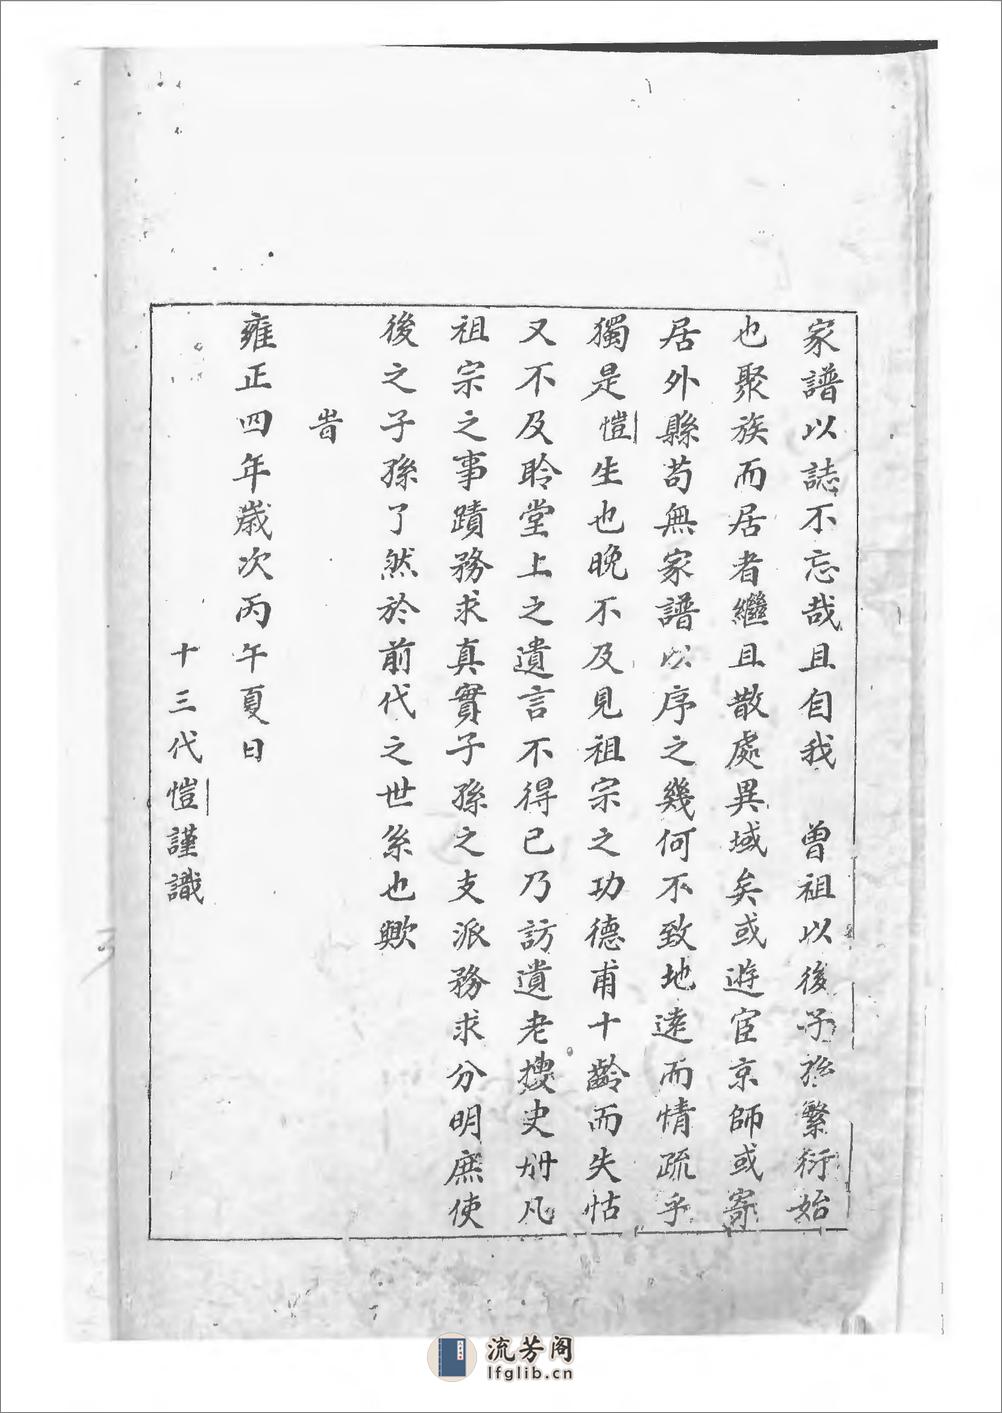 家譜以誌不忘哉且自我　曾祖以後子孫繁衍始
也聚族而居者繼且散處異域矣或遊宦京師或寄
居外縣苟無家譜以序之幾何不致地遠而情疏乎
獨是愷生也晚不及見祖宗之功德甫十齡而失怙
又不及聆堂上之遺言不得已乃訪遺老搜史册凡
祖宗之事蹟務求真實子孫之支派務求分明庶使
後之子孫了然於前代之世系也歟
旹
雍正四年歲次丙午夏日
十三代愷謹識
流芳阁
lfglib.cn